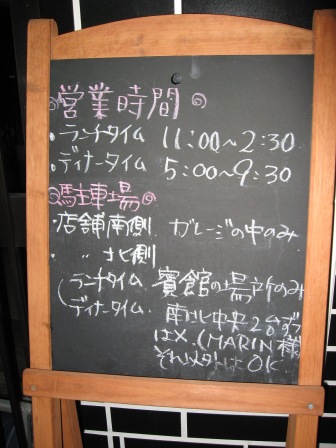 営業時間
・ランチタイム 11:00〜2:30
・ディナータイム 5:00〜9:30
駐車場
・店舗南側 ガレージの中のみ
・ 〃 北側
ランチタイム 賓館の場所のみ
ディナータイム 南北中央2台ずつ
は×.(MARIN様
それ以外はOK